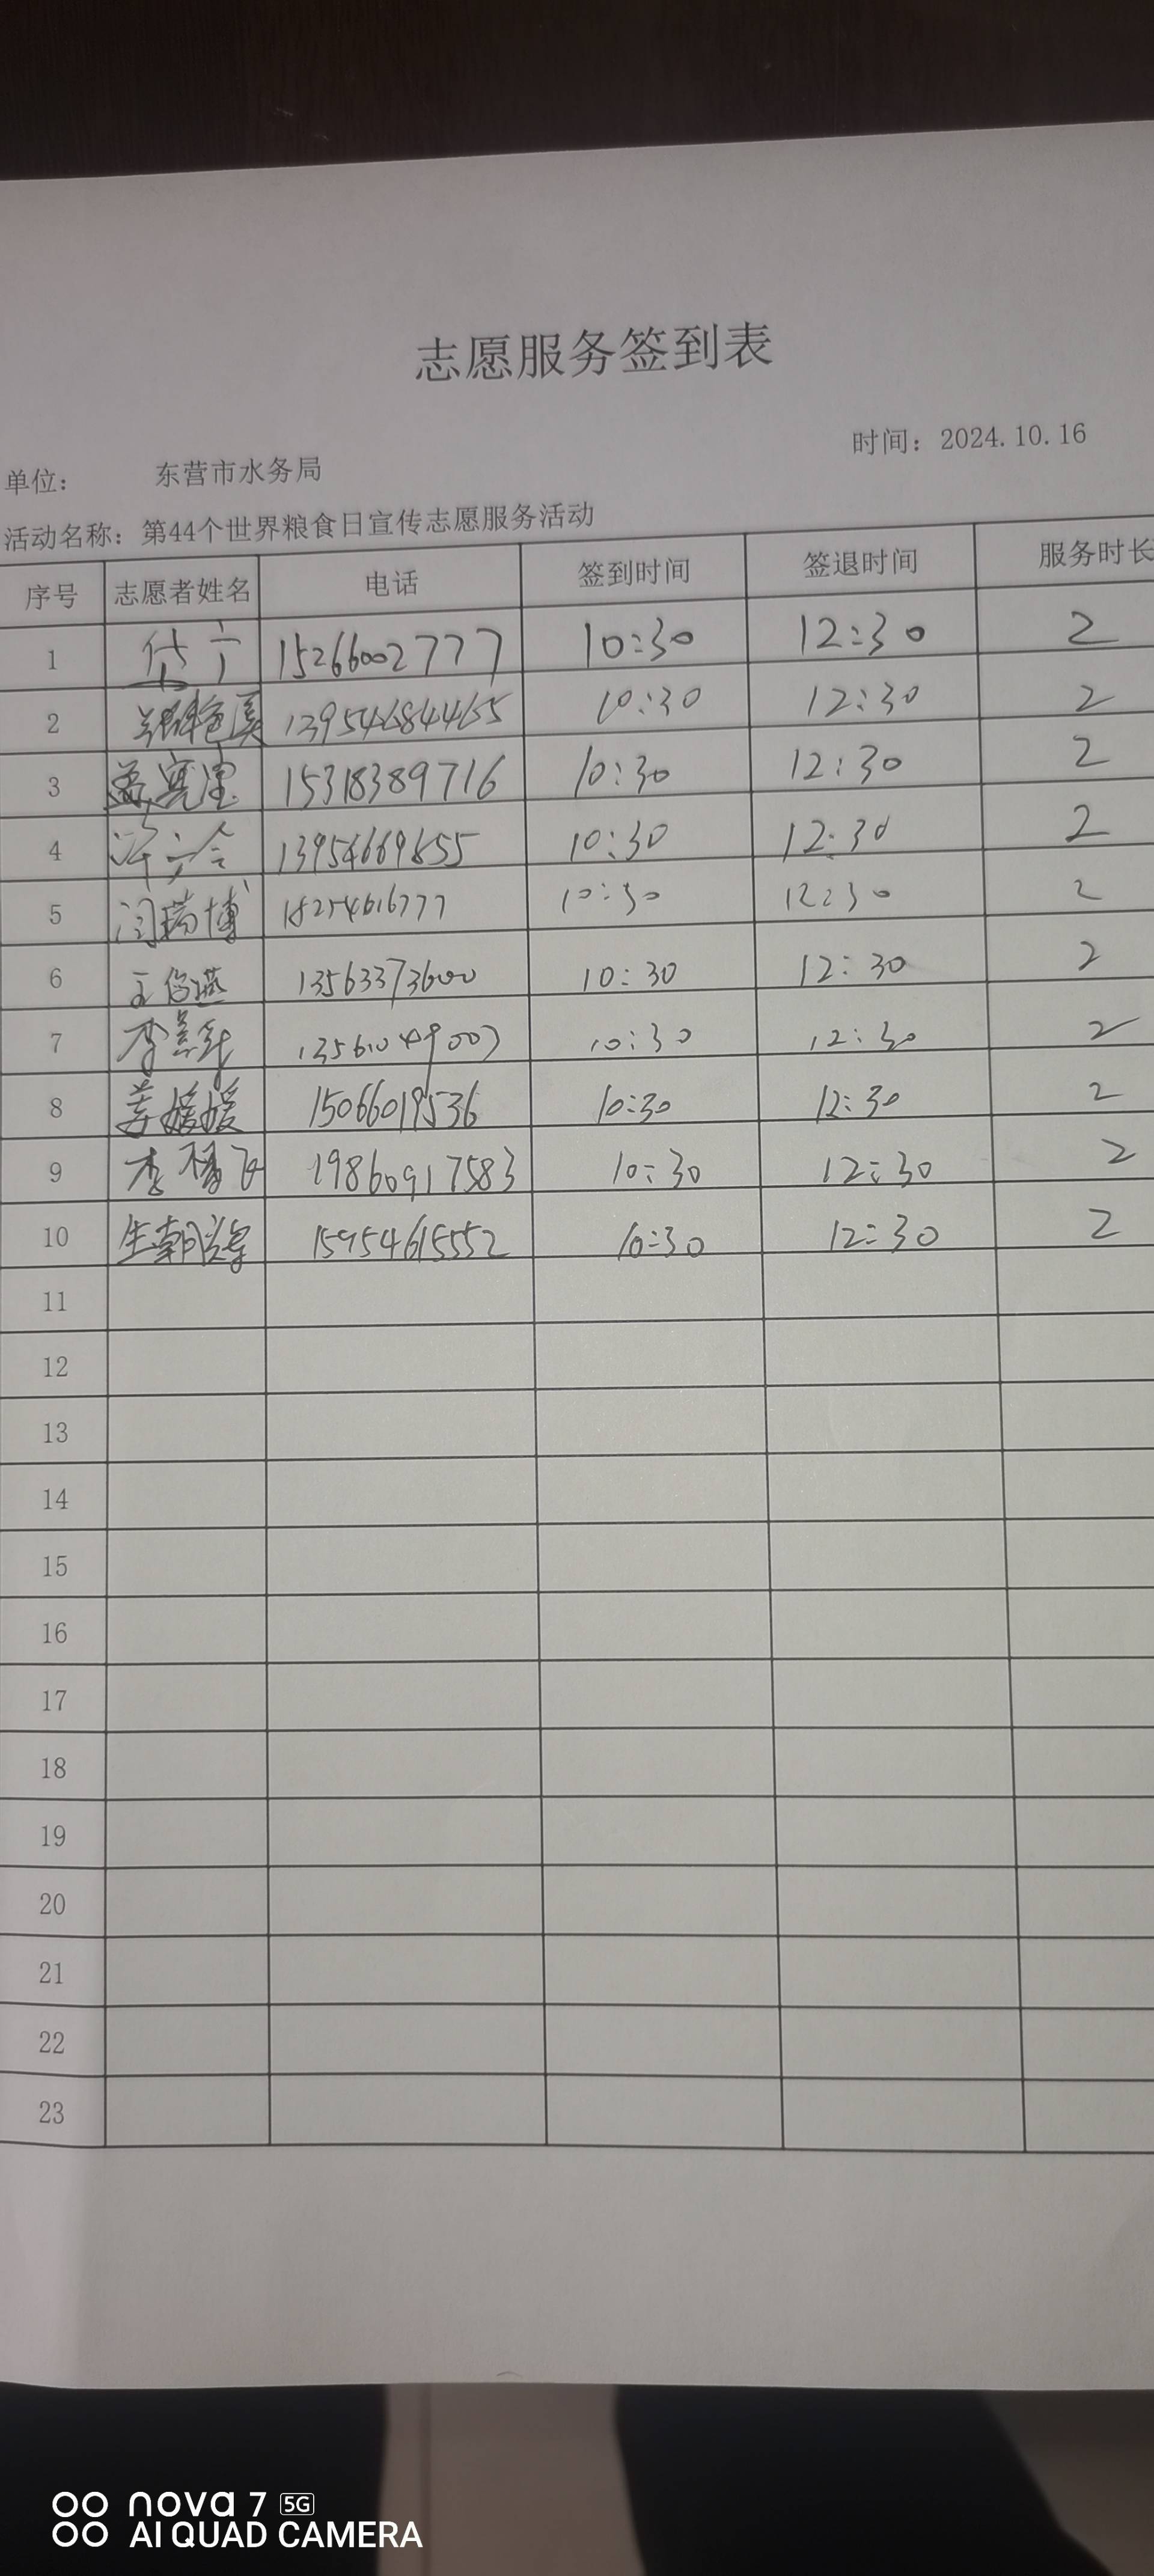 志愿服务签到表
时间：2024.10.16
单位： 东营市水务局
活动名称：第44个世界粮食日宣传志愿服务活动
序号 志愿者姓名 电话 签到时间 签退时间 服务时长
1 15266002777 10:30 12:30 2
2 13954684465 10:30 12:30 2
3 15318389716 10:30 12:30 2
4 10:30 12:30 2
5 闫瑞博 10:30 12:30 2
6 13563373600 10:30 12:30 2
7 10:30 12:30 2
8 姜媛媛 15066019536 10:30 12:30 2
9 19860917583 10:30 12:30 2
10 15954615552 10:30 12:30 2
11
12
13
14
15
16
17
18
19
20
21
22
23
nova 7 5G
AI QUAD CAMERA